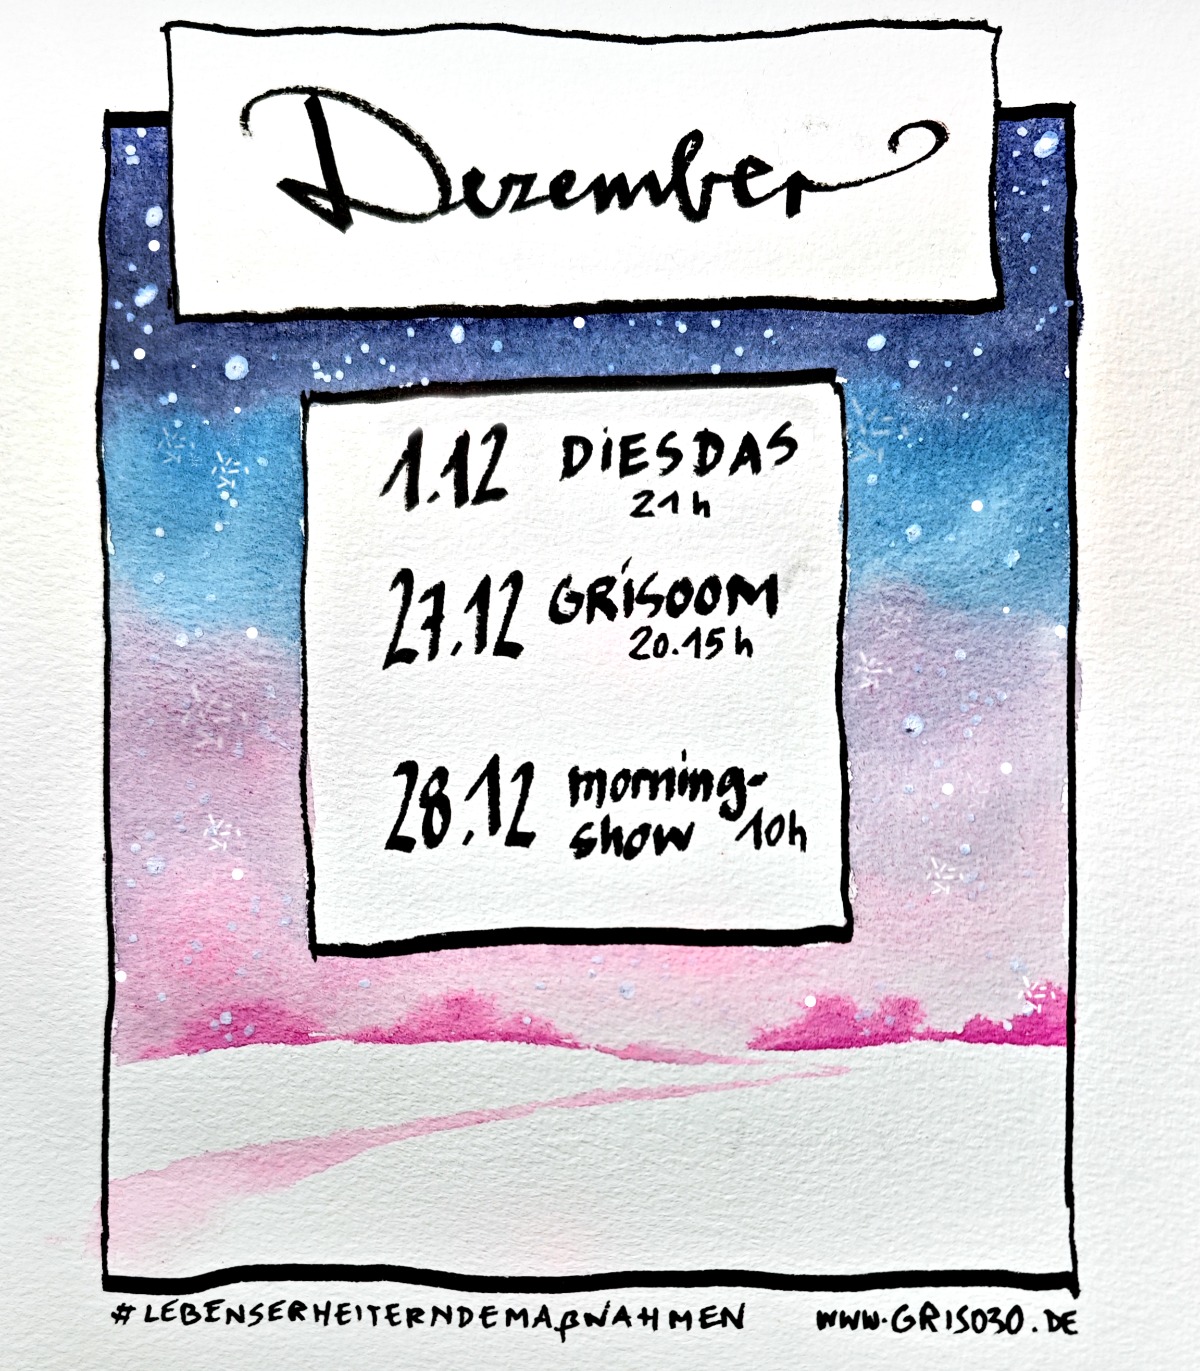 Dezember
1.12 DiESDAS
21h
27.12 GRiSOOM
20.15h
28.12 morning-
show 10h
#LEBENSERHEITERNDEMAßNAHMEN WWW.GRISO30.DE